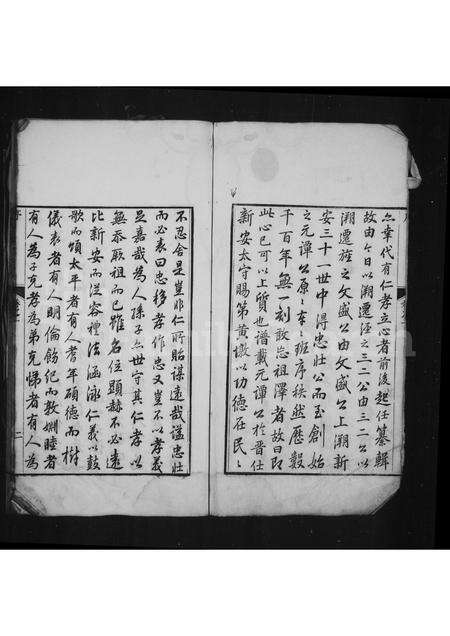 亦幸代有仁孝立心者前後起任纂輯
故由今日以溯遷涇之三二公由三二公以
溯遷旌之文盛公由文盛公上溯新
安三十一世中得忠壯公而至創始
之元譚公原原本本班序秩然歷數
千百年無一刻敢忘祖澤者故曰即
此心已可以上質也譜載元譚公於晉任
新安太守賜第黃墩以功德在民民
不忍舍是豈非仁所貽謀遠哉謚忠壯
而必表曰忠移孝作忠又豈不以孝義
是嘉哉為人孫子奕世守其仁孝以
無忝厥祖而已雖名位顯赫不必遠
比新安而從容禮法涵泳仁義以鼓
歌而頌太平者有人耆年碩德而樹
儀表者有人明倫飭紀而敦婣睦者
有人為子克孝為弟克悌者有人為
序
二